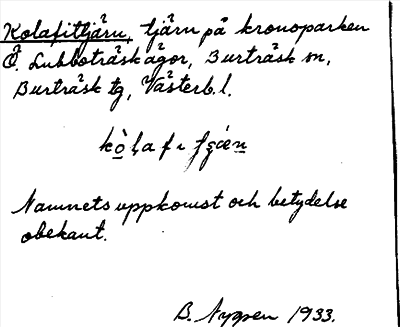 Kolafittjärn, tjärn på kronoparken
Ö. Lubboträskågor, Burträsk sn,
Burträsk tg, Västerb. l.
Namnets uppkomst och betydelse
obekant.
B. Nygren 1933.